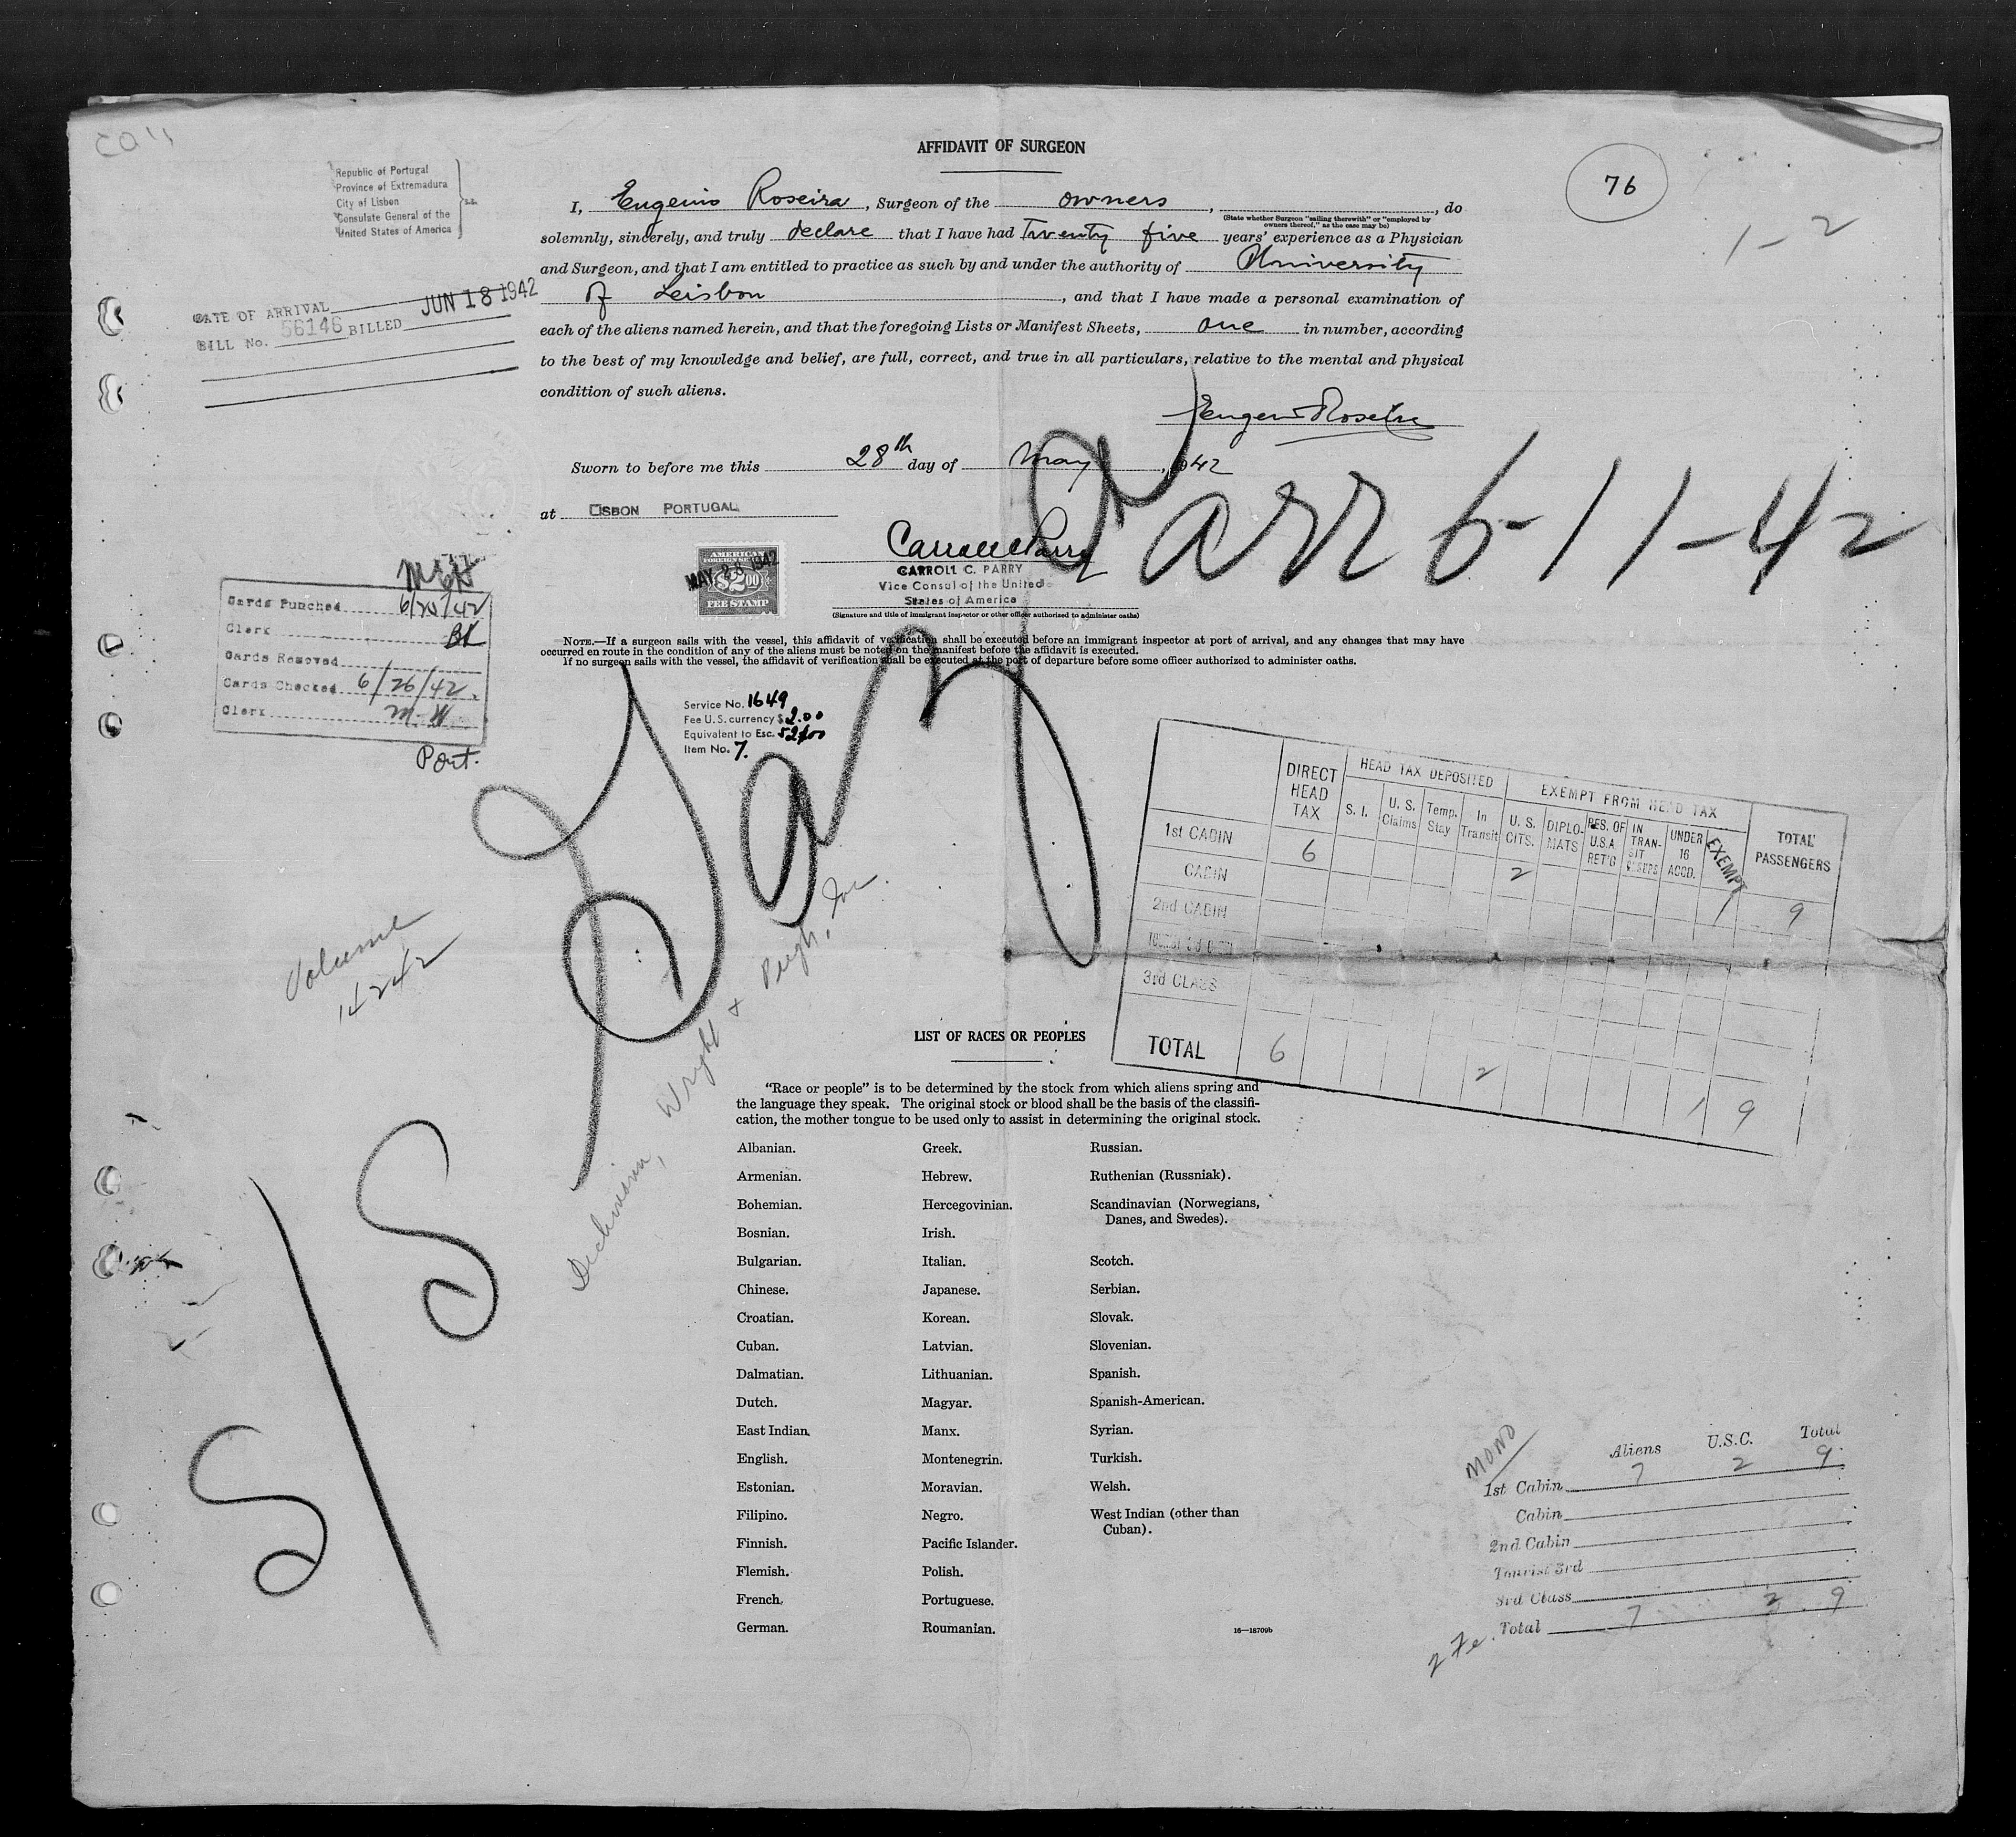 AFFIDAVIT OF SURGEON
76
1-2
Republic of Portugal
Province of Extremadura
City of Lisbon
Consulate General of the
United States of America
S.S.
I, Eugenio Roseira, Surgeon of the owners, , do
(State whether Surgeon "sailing therewith" or "employed by
owners thereof," as the case may be)
solemnly, sincerely, and truly declare that I have had Twenty five years' experience as a Physician
and Surgeon, and that I am entitled to practice as such by and under the authority of University
of Leisbon, and that I have made a personal examination of
each of the aliens named herein, and that the foregoing Lists or Manifest Sheets, one in number, according
to the best of my knowledge and belief, are full, correct, and true in all particulars, relative to the mental and physical
condition of such aliens.
Eugenio Roseira
DATE OF ARRIVAL JUN 18 1942
BILL No. 56146 BILLED
Sworn to before me this 28th day of May, 1942
at LISBON PORTUGAL
arr 6-11-42
AMERICAN
FOREIGN SERVICE
$2.00
FEE STAMP
MAY 28 1942
Carroll C Parry
CARROLL C. PARRY
Vice Consul of the United
States of America
(Signature and title of immigrant inspector or other officer authorized to administer oaths)
NOTE.—If a surgeon sails with the vessel, this affidavit of verification shall be executed before an immigrant inspector at port of arrival, and any changes that may have
occurred en route in the condition of any of the aliens must be noted on the manifest before the affidavit is executed.
If no surgeon sails with the vessel, the affidavit of verification shall be executed at the port of departure before some officer authorized to administer oaths.
Cards Punched 6/25/42
Clerk BL
Cards Removed
Cards Checked 6/26/42.
Clerk M. W
Port.
Service No. 1649
Fee U.S. currency $2.00
Equivalent to Esc. 52$00
Item No. 7.
DIRECT HEAD TAX
HEAD TAX DEPOSITED
EXEMPT FROM HEAD TAX
TOTAL PASSENGERS
S. I. U. S. Claims Temp. Stay In Transit U. S. CITS. DIPLO-MATS RES. OF U.S.A. RET'G IN TRAN-SIT UNDER 16 ACCD. EXEMPT
1st CABIN 6 2 1 9
CABIN
2nd CABIN
TOURIST 3rd CABIN
3rd CLASS
TOTAL 6 2 1 9
Volume
14242
S/S
Wright & Pugh, Inc.
LIST OF RACES OR PEOPLES
"Race or people" is to be determined by the stock from which aliens spring and
the language they speak. The original stock or blood shall be the basis of the classifi-
cation, the mother tongue to be used only to assist in determining the original stock.
Albanian. Greek. Russian.
Armenian. Hebrew. Ruthenian (Russniak).
Bohemian. Hercegovinian. Scandinavian (Norwegians,
Danes, and Swedes).
Bosnian. Irish.
Bulgarian. Italian. Scotch.
Chinese. Japanese. Serbian.
Croatian. Korean. Slovak.
Cuban. Latvian. Slovenian.
Dalmatian. Lithuanian. Spanish.
Dutch. Magyar. Spanish-American.
East Indian. Manx. Syrian.
English. Montenegrin. Turkish.
Estonian. Moravian. Welsh.
Filipino. Negro. West Indian (other than
Cuban).
Finnish. Pacific Islander.
Flemish. Polish.
French. Portuguese.
German. Roumanian.
16—18709b
MONO
Aliens U.S.C. Total
1st Cabin 7 2 9
Cabin
2nd Cabin
Tourist 3rd
3rd Class
Total 7 2 9